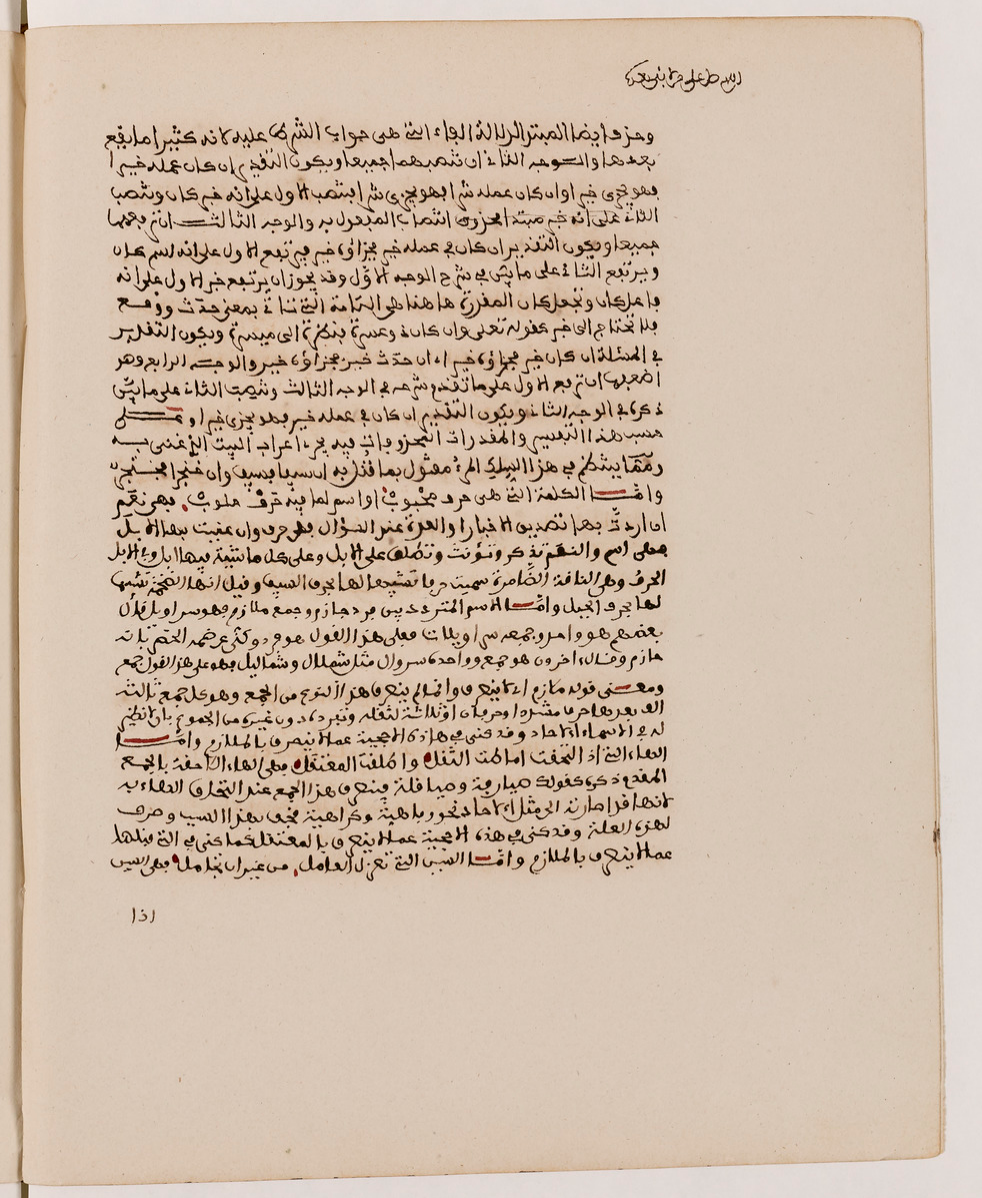 اللهم صل على من لا نبي بعده
وحذف ايضا المبتدا لدلالة الفاء التي هي جواب الشرط عليه لانه كثيرا ما يقع
بعدها والوجه الثاني ان تنصبهما جميعا ويكون التقدير ان كان عمله خيرا
فهو يجزى خيرا وان كان عمله شرا فهو يجزى شرا فينتصب الاول على انه خبر كان وينتصب
الثاني على انه خبر مبتدا محذوف انتصاب المفعول به والوجه الثالث ان ترفعهما
جميعا ويكون التقدير ان كان في عمله خير فجزاؤه خير فيرتفع الاول على انه اسم كان
ويرتفع الثاني على ما بين في شرح الوجه الاول وقد يجوز ان يرتفع خير الاول على انه
فاعل كان وتجعل كان المقدرة هاهنا هي التامة التي تاتي بمعنى حدث ووقع
فلا تحتاج الى خبر كقوله تعلى وان كان ذو عسرة فنظرة الى ميسرة ويكون التقدير
في المسئلة ان كان خير فجزاؤه خير اي ان حدث خير فجزاؤه خير والوجه الرابع وهو
اضعفها ان ترفع الاول على ما تقدم شرحه في الوجه الثالث وتنصب الثاني على ما بين
ذكره في الوجه الثاني ويكون التقدير ان كان في عمله خير فهو يجزى خيرا وعلى
حسب هذا التفسير والمقدرات المحذوفات فيه يجري اعراب البيت الذي غنى به
ومما ينتظم في هذا السلك المرء مقتول بما قتل به ان سيفا فسيف وان خنجرا فخنجر
واما الكلمة التي هي حرف محبوب او اسم لما فيه حرف حلوب فهي نعم
ان اردت بها تصديق الاخبار او العدة عند السؤال فهي حرف وان عنيت بها الابل
فهي اسم والنعم تذكر وتؤنث وتطلق على الابل وعلى كل ماشية فيها ابل وفي الابل
الحرف وهي الناقة الضامرة سميت حرفا تشبيها لها بحرف السيف وقيل انها الضخمة تشبيها
لها بحرف الجبل واما الاسم المتردد بين فرد حازم وجمع ملازم فهو سراويل قال
بعضهم هو واحد وجمعه سراويلات فعلى هذا القول هو فرد وكنى عن ضمه الخصر بانه
حازم وقال اخرون هو جمع وواحده سروال مثل شملال وشماليل فهو على هذا القول جمع
ومعنى قوله ملازم اي لا ينصرف وانما لم ينصرف هذا النوع من الجمع وهو كل جمع ثالثه
الف بعدها حرف مشدد او حرفان او ثلاثة لثقله وتفرده دون غيره من الجموع بان لا نظير
له في الاسماء الاحاد وقد كنى في هاذه الاحجية عما لا ينصرف بالملازم واما
الهاء التي اذا التحقت اماطت الثقل واطلقت المعتقل فهي الهاء اللاحقة بالجمع
المقدم ذكره كقولك صيارفة وصياقلة فينصرف هذا الجمع عند التحاق الهاء به
لانها قد اصارته الى مثل الاحاد نحو رفاهية وكراهية فخف بهذا السبب وصرف
لهذه العلة وقد كنى في هذه الاحجية عما لا ينصرف بالمعتقل كما كنى في التي قبلها
عما لا ينصرف بالملازم واما السين التي تعزل العامل من غير ان تجامل فهي السين
اذا